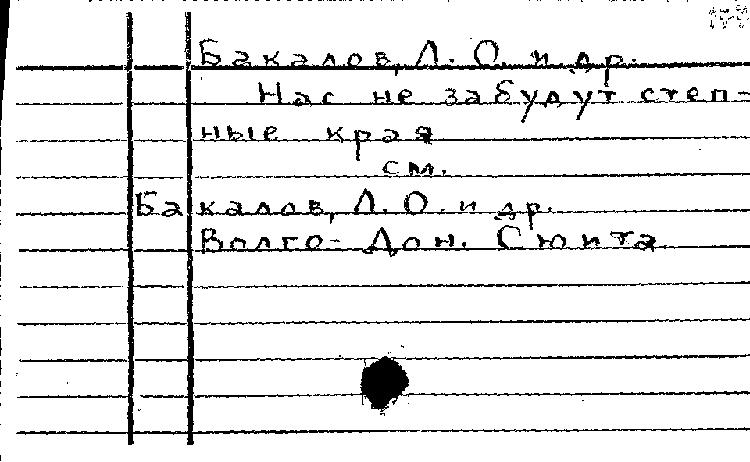 Бакалов, Л. О. и др.
Нас не забудут степ-
ные края
см.
Бакалов, Л. О. и др.
Волго-Дон. Сюита